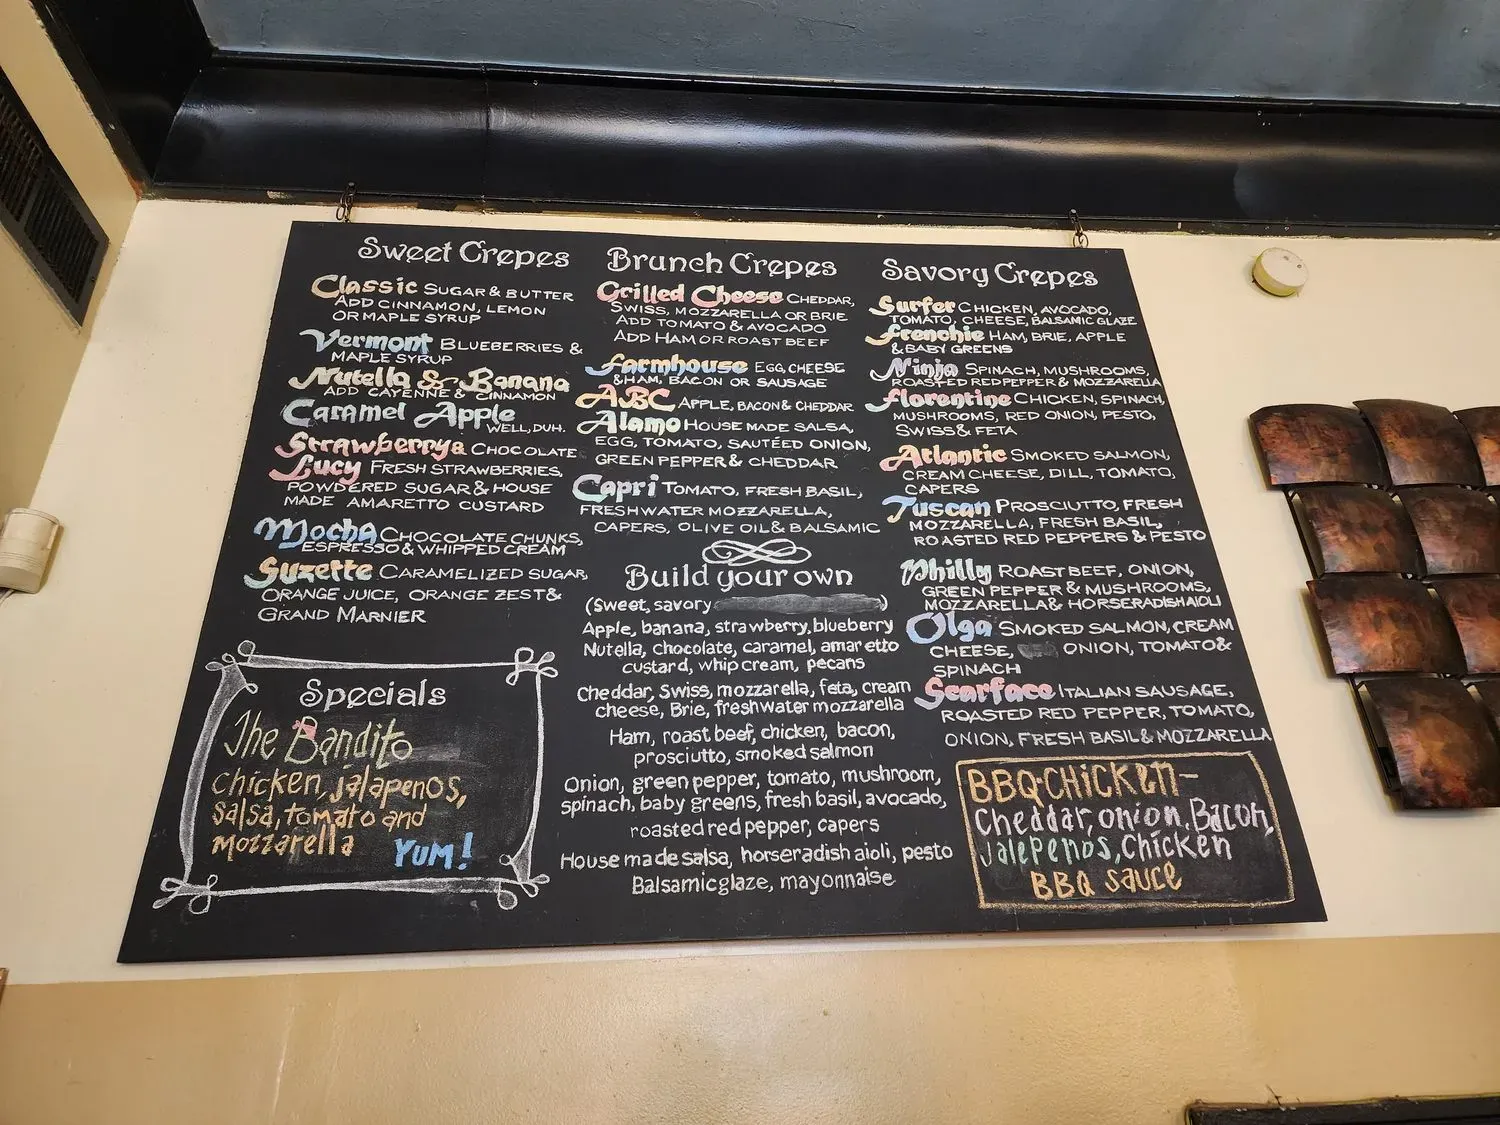 Sweet Crepes
Classic SUGAR & BUTTER
ADD CINNAMON, LEMON
OR MAPLE SYRUP
Vermont BLUEBERRIES &
MAPLE SYRUP
Nutella & Banana
ADD CAYENNE & CINNAMON
Caramel Apple
WELL, DUH.
Strawberry & CHOCOLATE
Lucy FRESH STRAWBERRIES,
POWDERED SUGAR & HOUSE
MADE AMARETTO CUSTARD
Mocha CHOCOLATE CHUNKS,
ESPRESSO & WHIPPED CREAM
Suzette CARAMELIZED SUGAR,
ORANGE JUICE, ORANGE ZEST &
GRAND MARNIER
Specials
The Bandito
chicken, jalapenos,
salsa, tomato and
mozzarella
YUM!
Brunch Crepes
Grilled Cheese CHEDDAR,
SWISS, MOZZARELLA OR BRIE
ADD TOMATO & AVOCADO
ADD HAM OR ROAST BEEF
Farmhouse EGG, CHEESE
& HAM, BACON OR SAUSAGE
ABC APPLE, BACON & CHEDDAR
Alamo HOUSE MADE SALSA,
EGG, TOMATO, SAUTÉED ONION,
GREEN PEPPER & CHEDDAR
Capri TOMATO, FRESH BASIL,
FRESHWATER MOZZARELLA,
CAPERS, OLIVE OIL & BALSAMIC
Build your own
(Sweet, savory )
Apple, banana, strawberry, blueberry
Nutella, chocolate, caramel, amaretto
custard, whip cream, pecans
Cheddar, Swiss, mozzarella, feta, cream
cheese, Brie, freshwater mozzarella
Ham, roast beef, chicken, bacon,
prosciutto, smoked salmon
Onion, green pepper, tomato, mushroom,
spinach, baby greens, fresh basil, avocado,
roasted red pepper, capers
House made salsa, horseradish aioli, pesto
Balsamic glaze, mayonnaise
Savory Crepes
Surfer CHICKEN, AVOCADO,
TOMATO, CHEESE, BALSAMIC GLAZE
Frenchie HAM, BRIE, APPLE
& BABY GREENS
Ninja SPINACH, MUSHROOMS,
ROASTED RED PEPPER & MOZZARELLA
Florentine CHICKEN, SPINACH,
MUSHROOMS, RED ONION, PESTO,
SWISS & FETA
Atlantic SMOKED SALMON,
CREAM CHEESE, DILL, TOMATO,
CAPERS
Tuscan PROSCIUTTO, FRESH
MOZZARELLA, FRESH BASIL,
ROASTED RED PEPPERS & PESTO
Philly ROAST BEEF, ONION,
GREEN PEPPER & MUSHROOMS,
MOZZARELLA & HORSERADISH AIOLI
Olga SMOKED SALMON, CREAM
CHEESE, ONION, TOMATO &
SPINACH
Scarface ITALIAN SAUSAGE,
ROASTED RED PEPPER, TOMATO,
ONION, FRESH BASIL & MOZZARELLA
BBQ CHICKEN -
Cheddar, onion, Bacon,
Jalepenos, Chicken
BBQ sauce